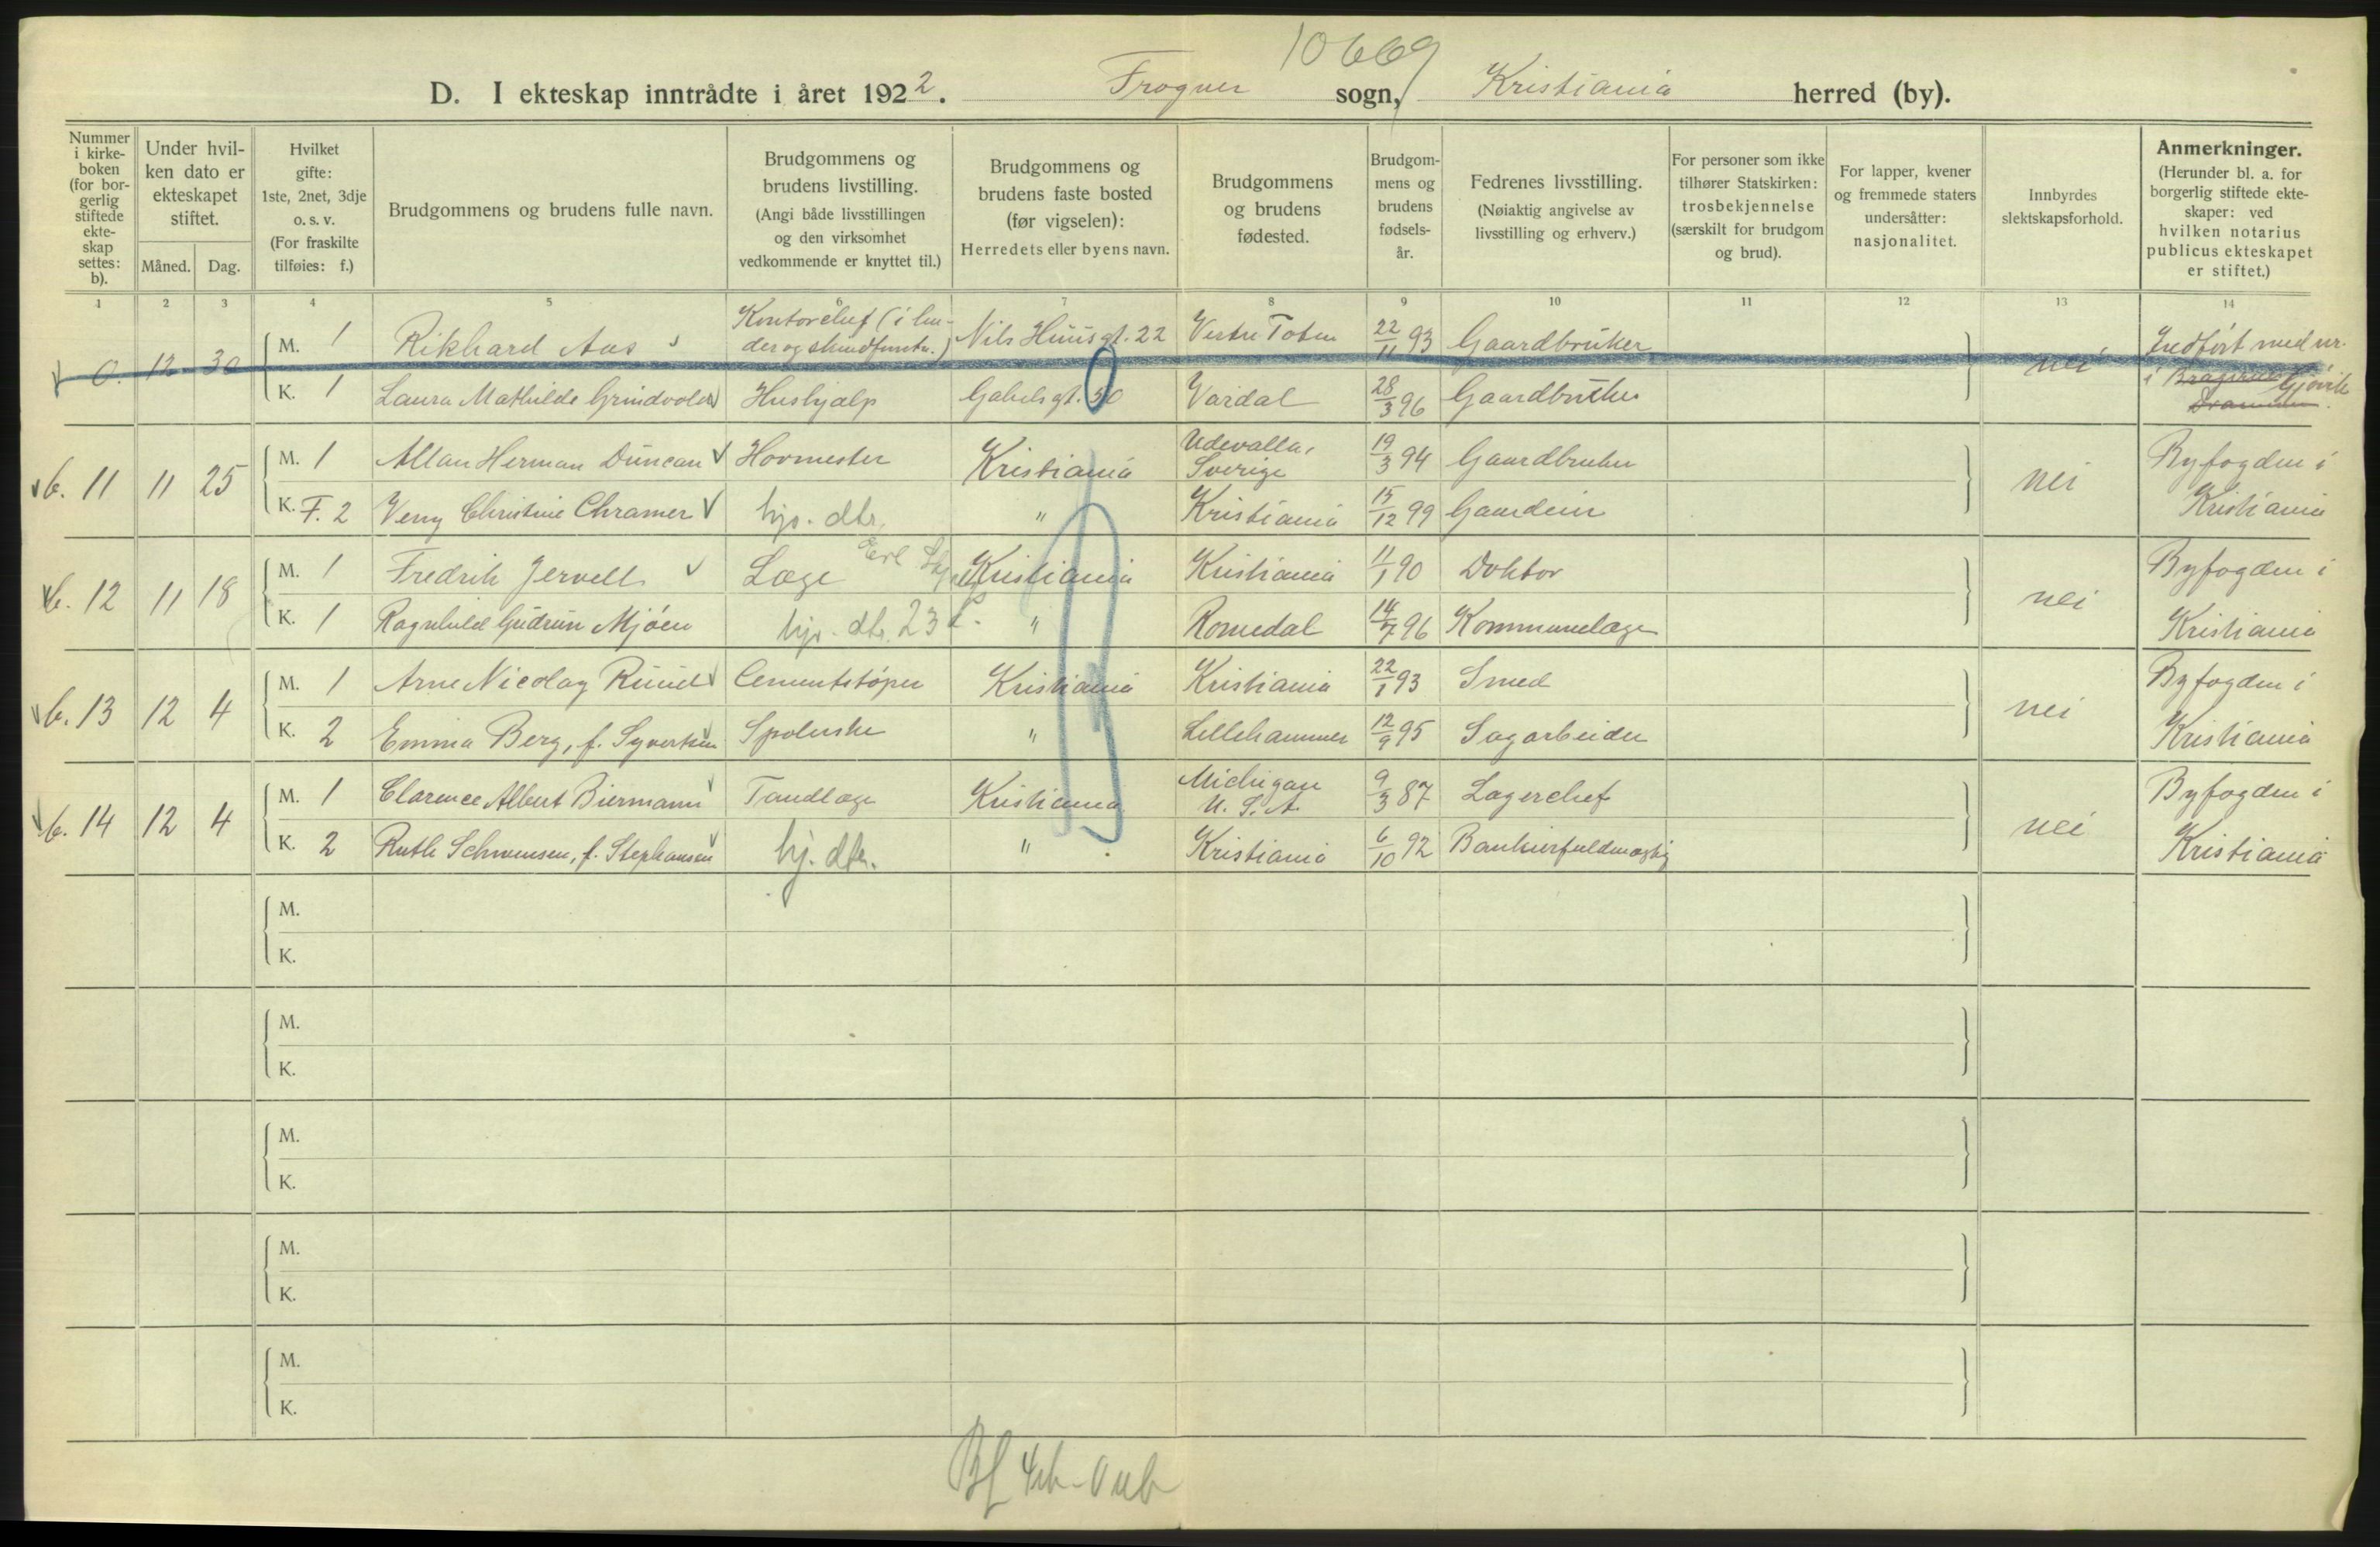 10669
D. I ekteskap inntrådte i året 1922. Frogner sogn, Kristiania herred (by).
Nummer i kirkeboken (for borgerlig stiftede ekteskap settes: b).
Under hvilken dato er ekteskapet stiftet.
Måned. Dag.
Hvilket gifte: 1ste, 2net, 3dje o. s. v. (For fraskilte tilføies: f.)
Brudgommens og brudens fulle navn.
Brudgommens og brudens livstilling. (Angi både livsstillingen og den virksomhet vedkommende er knyttet til.)
Brudgommens og brudens faste bosted (før vigselen): Herredets eller byens navn.
Brudgommens og brudens fødested.
Brudgommens og brudens fødselsår.
Fedrenes livsstilling. (Nøiaktig angivelse av livsstilling og erhverv.)
For personer som ikke tilhører Statskirken: trosbekjennelse (særskilt for brudgom og brud).
For lapper, kvener og fremmede staters undersåtter: nasjonalitet.
Innbyrdes slektskapsforhold.
Anmerkninger. (Herunder bl. a. for borgerlig stiftede ekteskaper: ved hvilken notarius publicus ekteskapet er stiftet.)
1 2 3 4 5 6 7 8 9 10 11 12 13 14
0. 12 30 M. 1 Rikhard Aas Kontorchef Nils Huusgt. 22 Vestre Toten 22/11 93 Gaardbruker nei Indført med nr.
K. 1 Laura Mathilde Grindvolen Hushjælp Gabelsgt. 50 Vardal 28/3 96 Gaardbruker i Gjøvik
b. 11 11 25 M. 1 Allan Herman Duncan Hovmester Kristiania Udevalla, Sverige 19/3 94 Gaardbruker nei Byfogden i
K. F. 2 Veny Christine Chramer hjv. dtr. " Kristiania 15/12 99 Gaardeier Kristiania
b. 12 11 18 M. 1 Fredrik Jervell Læge Kristiania Kristiania 11/1 90 Doktor nei Byfogden i
K. 1 Ragnhild Gudrun Mjøen hjv. dtr. 23 " Romedal 14/7 96 Kommunelæge Kristiania
b. 13 12 4 M. 1 Arne Nicolay Ruud Cementstøper Kristiania Kristiania 22/1 93 Smed nei Byfogden i
K. 2 Emma Berg, f. Syvertsen Spolerske " Lillehammer 12/9 95 Sagarbeider Kristiania
b. 14 12 4 M. 1 Clarence Albert Biermann Tandlæge Kristiania Michigan U. S. A. 9/3 87 Lagerchef nei Byfogden i
K. 2 Ruth Schwensen, f. Stephansen hj. dtr. " Kristiania 6/10 92 Bankierfuldmægtig Kristiania
M.
K.
M.
K.
M.
K.
M.
K.
M.
K.